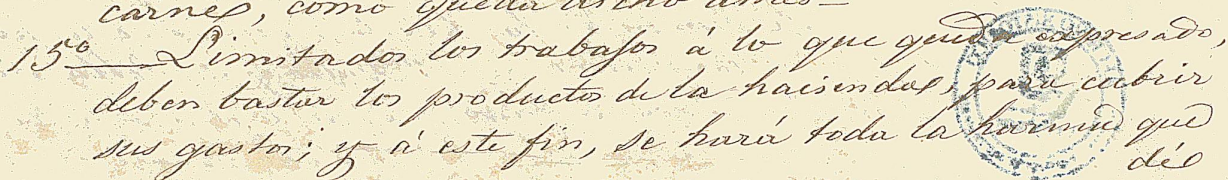 carnes, como queda dicho antes—
15º—Limitados los trabajos á lo que queda expresado,
deben bastar los productos de la haisendas, para cubrir
sus gastos; y á este fin, se hará toda la harina que
dé